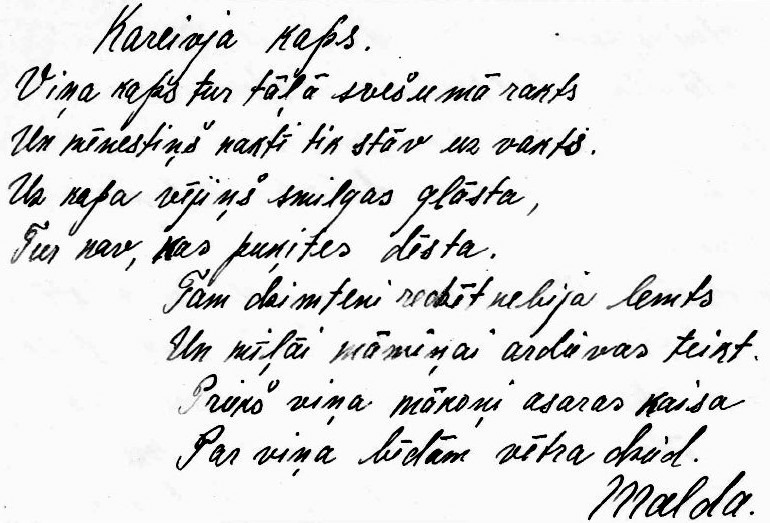 Kareivja kaps.
Viņa kaps tur tāļā svešumā rakts
Un mēnestiņš naktī tik stāv uz vakts.
Uz kapa vējiņš smilgas glāsta,
Tur nav, kas puķites dēsta.
Tam dzimteni redzēt nebija lemts
Un mīļai māmiņai ardievas teikt.
Priekš viņa mākoņi asaras kaisa
Par viņa bēdām vētra dzied.
Malda.